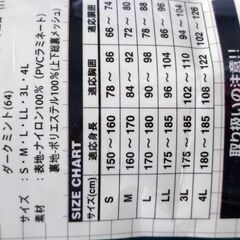 ダークミント(64)
: S・M・L・LL・3L・4L
素材 : 表地-ナイロン100% (PVCラミネート)
裏地-ポリエステル100%(上下総裏メッシュ)
SIZE CHART
サイズ(cm) 適応身長 適応胸囲 適応胴囲
S 150 ~ 160 78 ~ 86 66 ~ 74
M 160 ~ 170 84 ~ 92 72 ~ 80
L 170 ~ 180 90 ~ 98 78 ~ 88
LL 96 ~ 104
3L 94 ~
4L
取扱いの注意